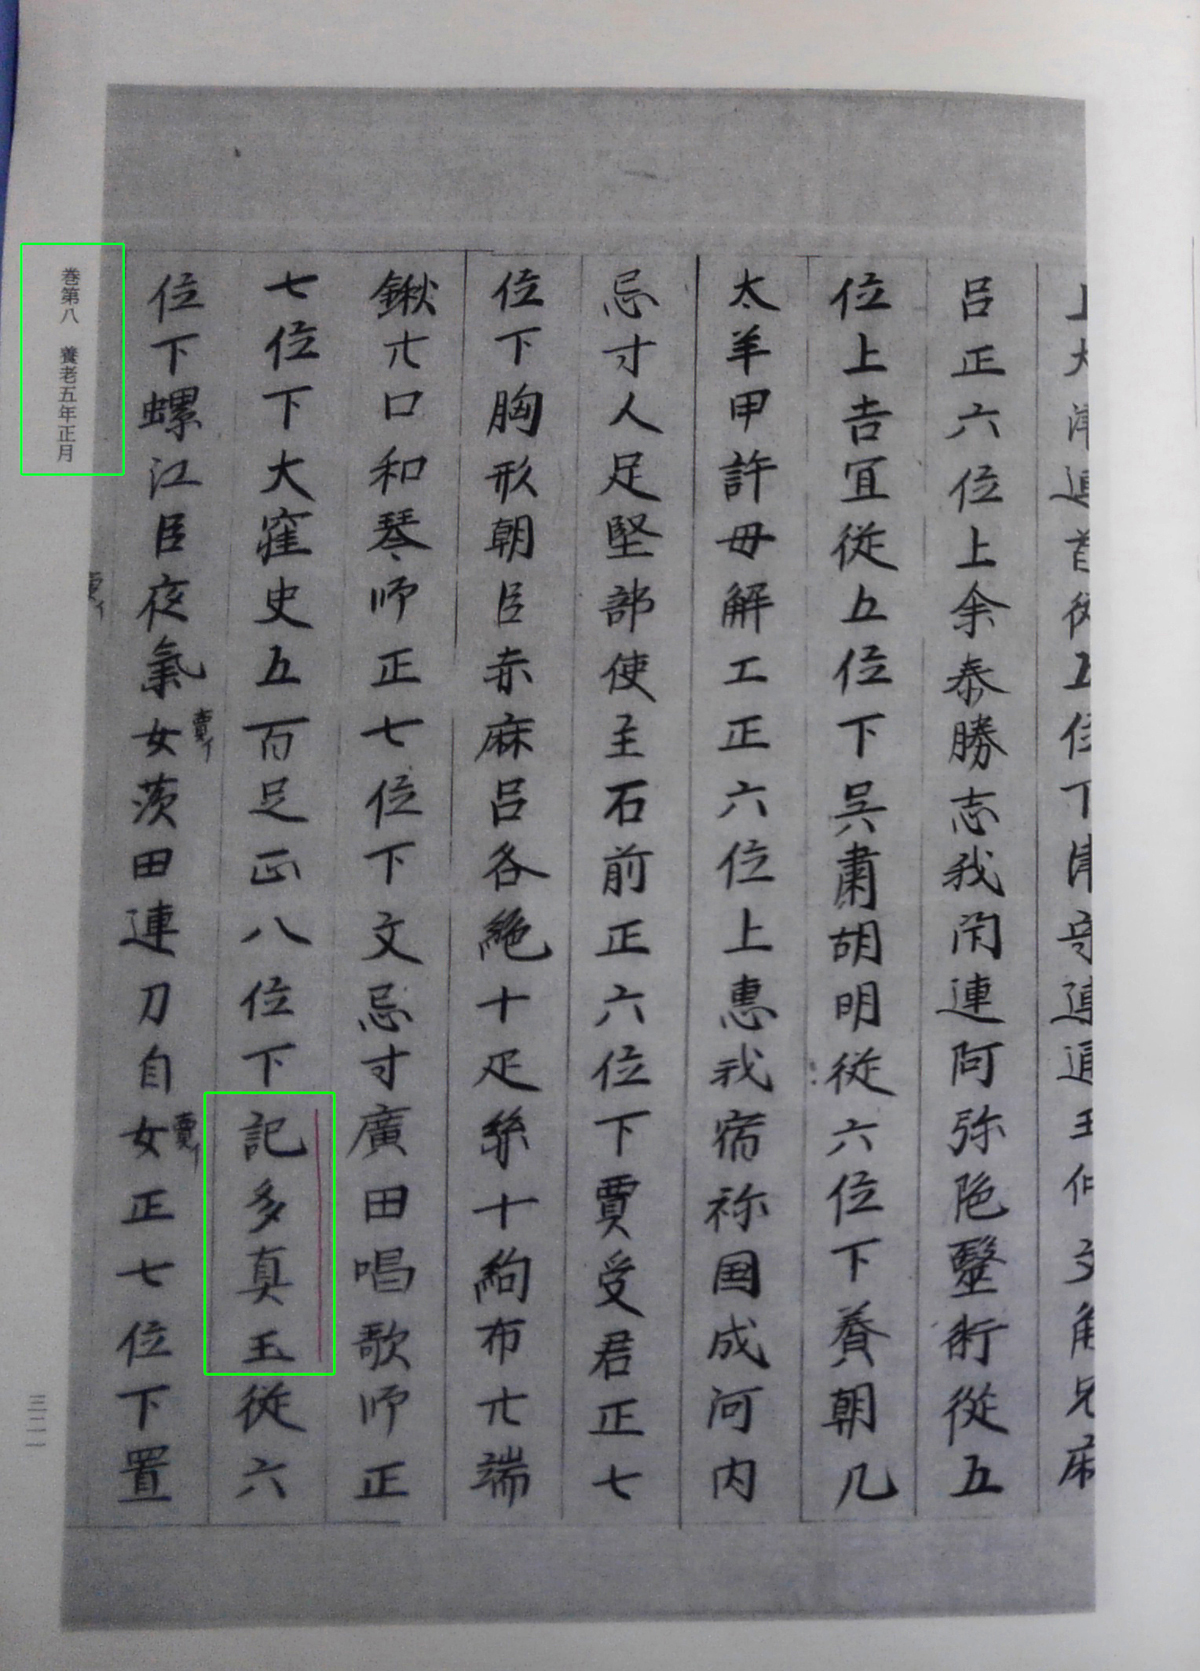 上大津連首從五位下津守連通王仲文角兄麻
呂正六位上余泰勝志我閇連阿弥陁毉術從五
位上吉冝從五位下呉肅胡明從六位下養朝几
太羊甲許母解工正六位上惠我宿祢国成河内
忌寸人足堅部使主石前正六位下賈受君正七
位下胸形朝臣赤麻呂各絁十疋絲十絇布廿端
鍬廿口和琴師正七位下文忌寸廣田唱歌師正
七位下大窪史五百足正八位下記多真玉從六
位下螺江臣夜氣女茨田連刀自女正七位下置
賣イ
賣イ
巻第八　養老五年正月
三二一